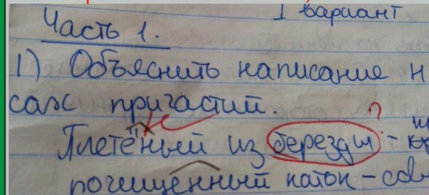 1 вариант
Часть 1.
1) Объяснить написание н
сах причастий.
?
Плетёный из березды -
почищенный каток - сов